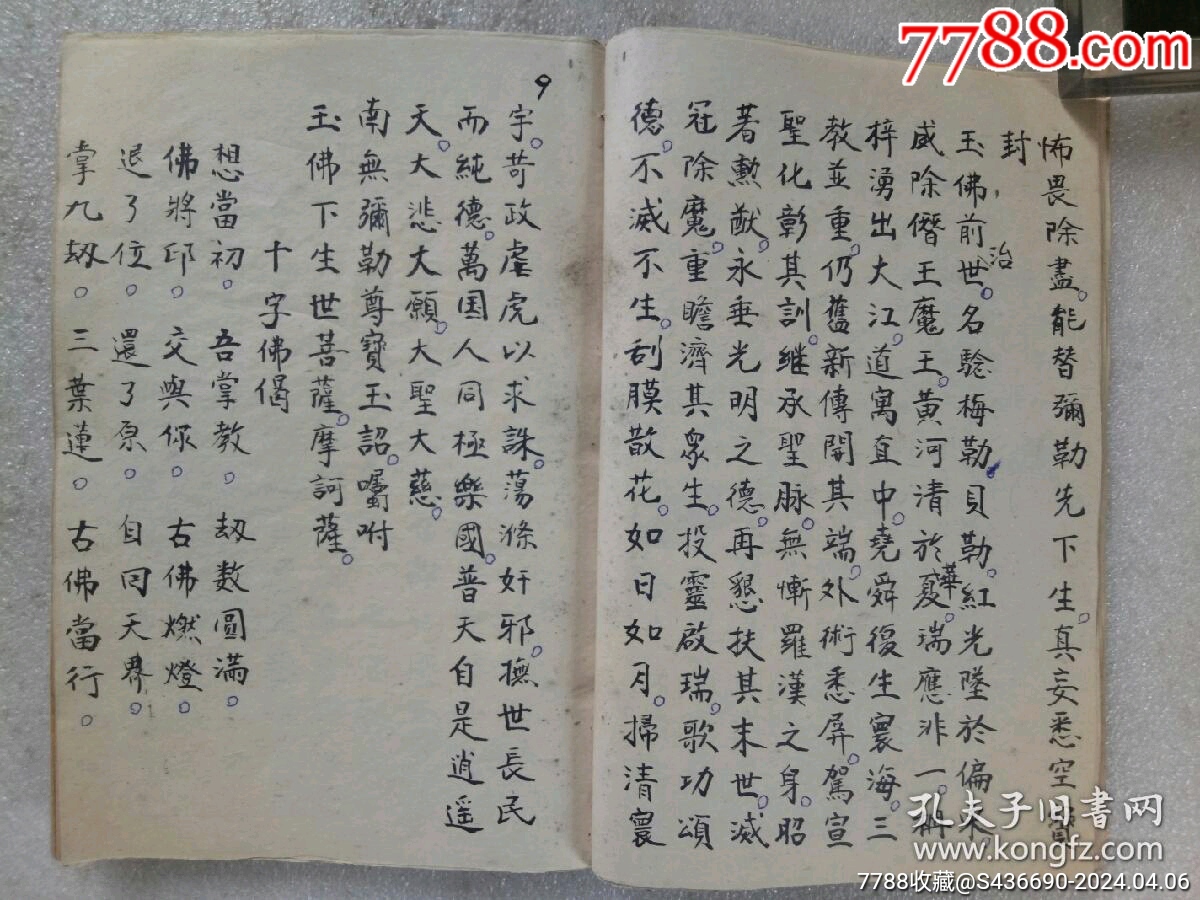 7788.com
怖畏除盡。能替彌勒先下生。真妄悉空實
封
玉佛前世。名騐梅勒。貝勒。紅光墜於偏
治
威除僭王魔王。黃河清於夏。瑞應非一。
華
梓湧出大江。道寓直中。堯舜復生寰海。三
教並重。仍舊新傳開其端。外術悉屏。駕宣
聖化彰其訓。継承聖脉。無慚羅漢之身。昭
著勲猷。永垂光明之德。再懇扶其末世。滅
冠除魔。重瞻濟其衆生。投靈啟瑞。歌功頌
德。不滅不生。刮膜散花。如日如月。掃清寰
9
宇。苛政虐虎以求誅。蕩滌奸邪。撫世長民
而純德。萬国人同極樂國。普天自是逍遥
天。大悲大願。大聖大慈。
南無彌勒尊寶玉詔。囑咐
玉佛下生世菩薩。摩訶薩。
十字佛偈
想當初。吾掌教。刼数圓滿。
佛將邱。交與你。古佛燃燈。
退了位。還了原。自囘天界。
掌九刼。三葉蓮。古佛當行。
孔夫子旧書网
www.kongfz.com
7788收藏@S436690-2024.04.06